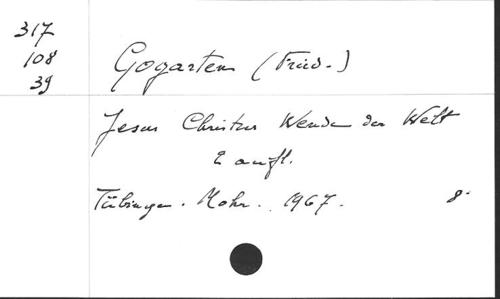 317
108
39
Gogarten (Fried.)
Jesus Christus Wende der Welt
2 aufl.
Tübingen. Mohr. 1967. 8.